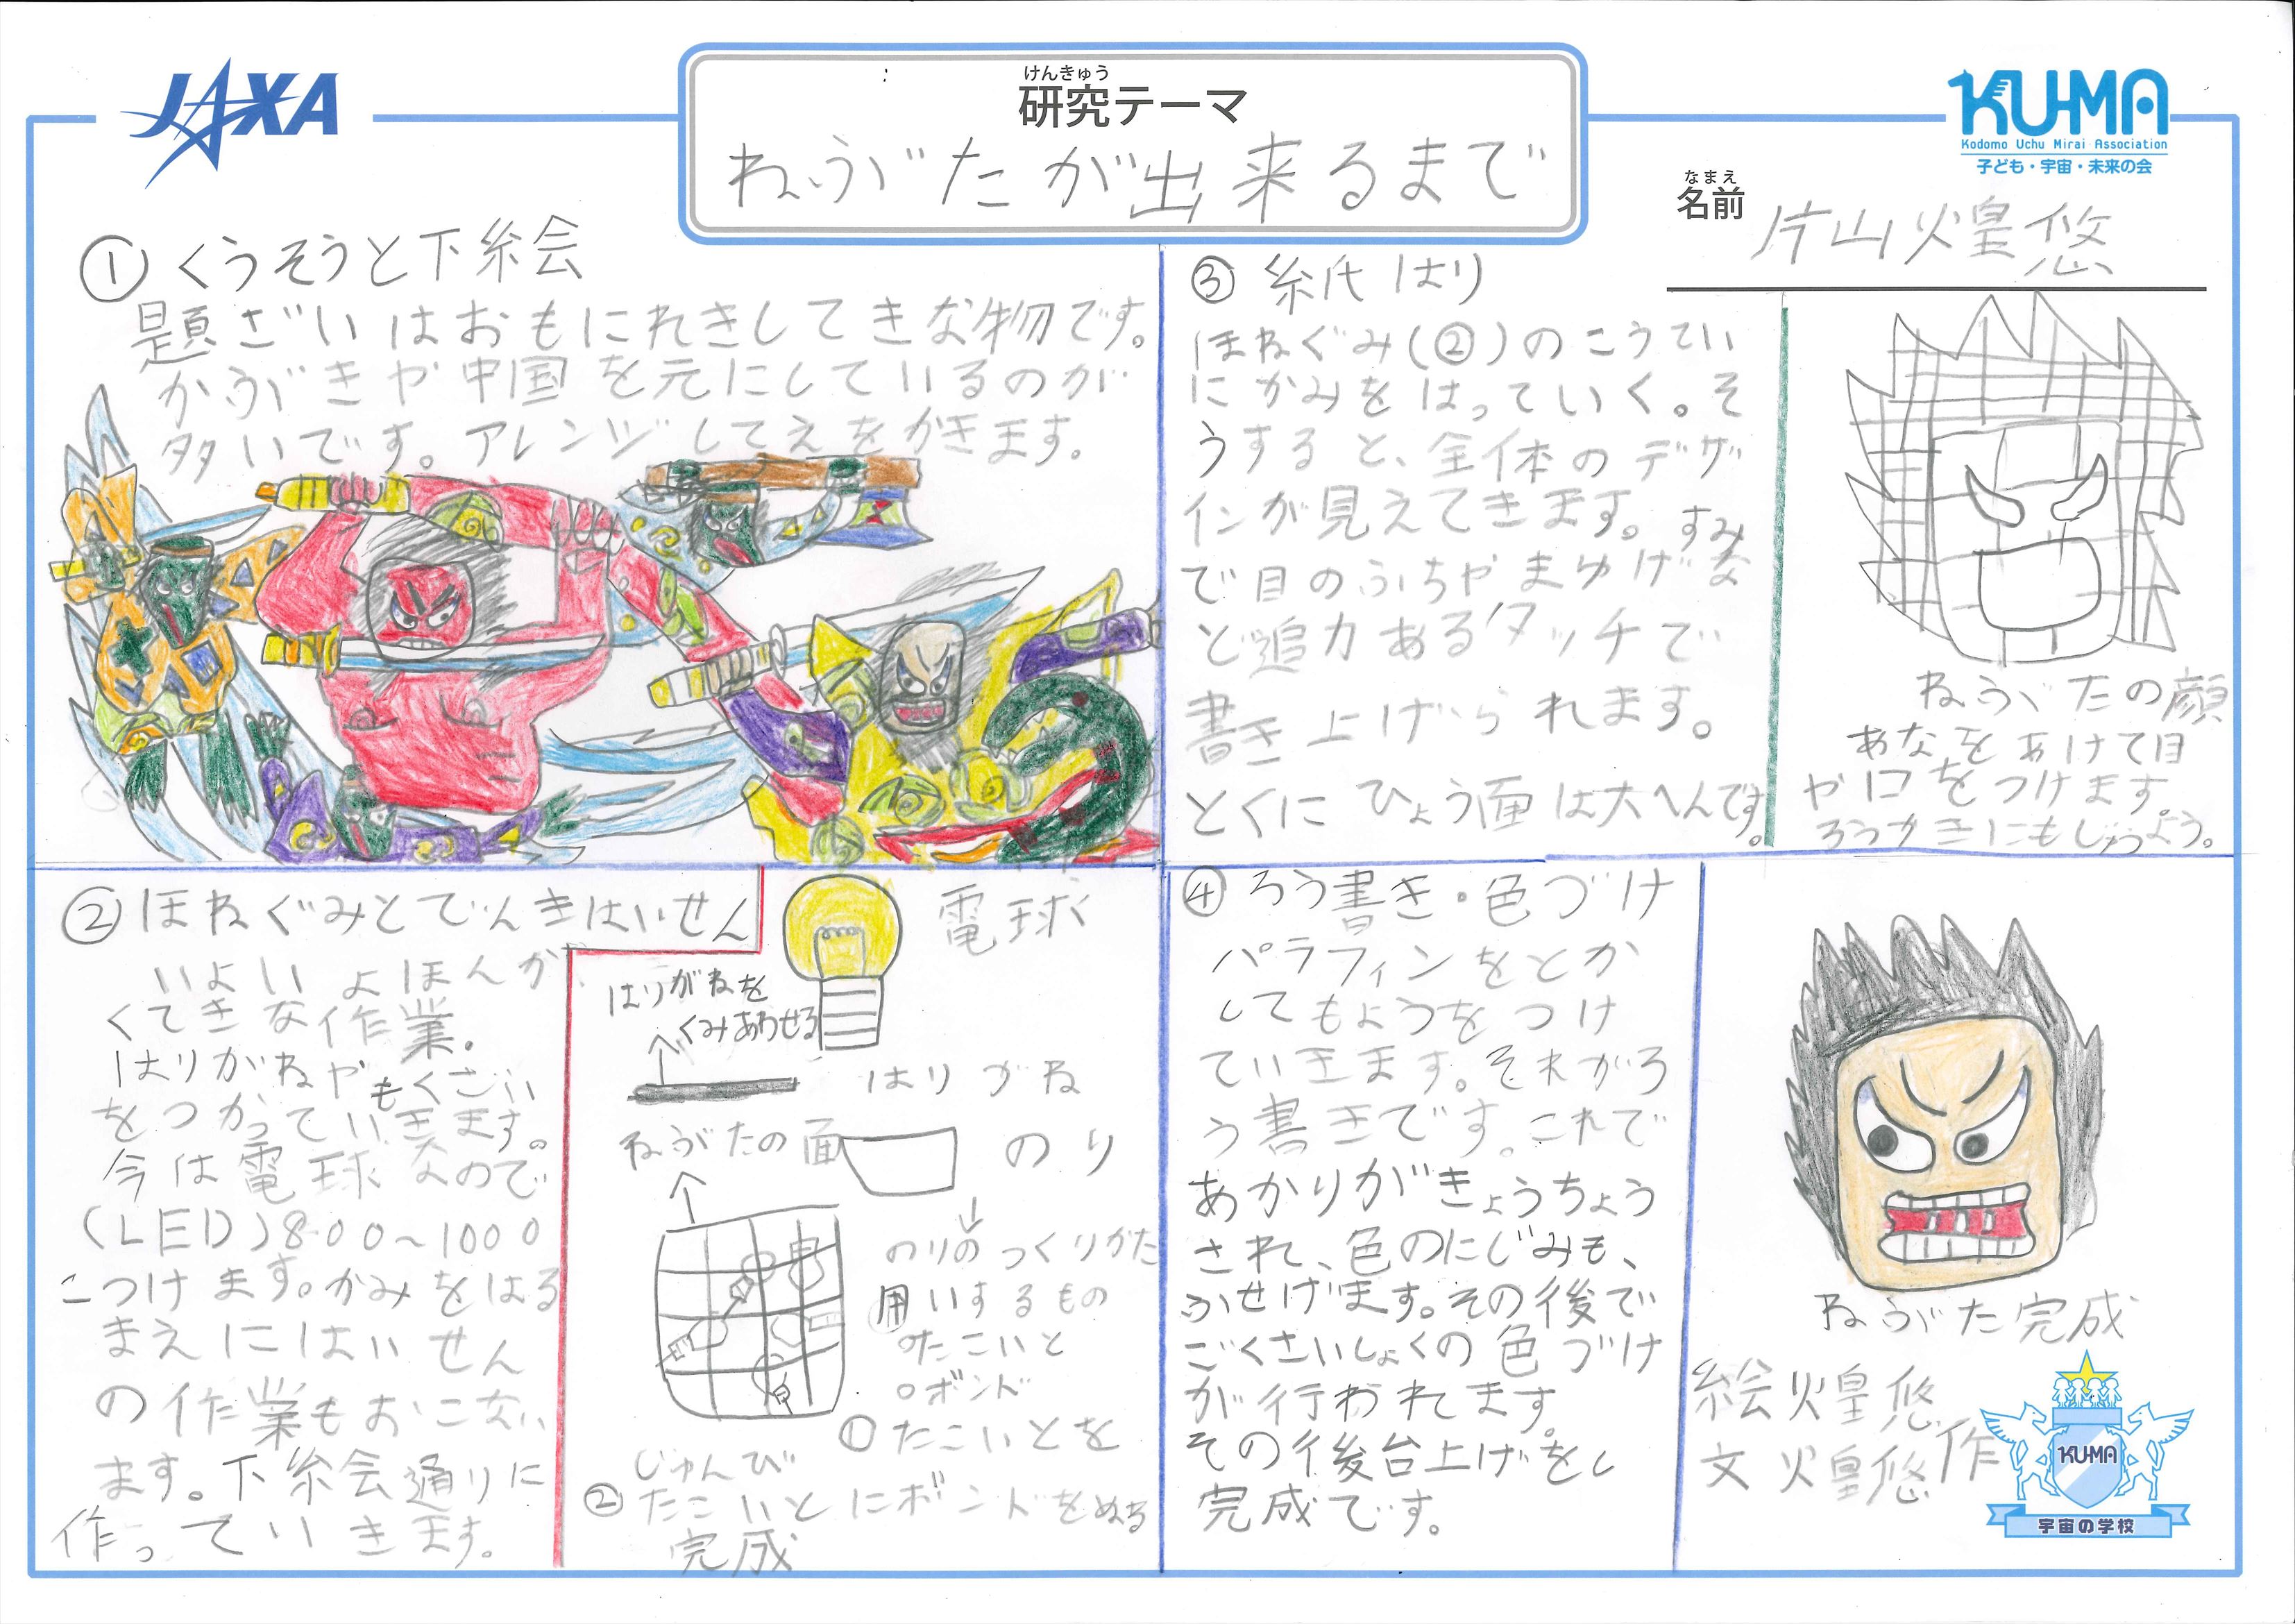 JAXA
けんきゅう
研究テーマ
ねぶたが出来るまで
KUMA
Kodomo Uchu Mirai Association
子ども・宇宙・未来の会
なまえ
名前
片山煌悠
① くうそうと下絵
題ざいはおもにれきしてきな物です。
かぶきや中国を元にしているのが
多いです。アレンジしてえをかきます。
② ほねぐみとでんきはいせん
いよいよほんか
くてきな作業。
はりがねやもくざい
をつかっていきます。
今は電球なので
(LED)800~1000
こつけます。かみをはる
まえにはいせん
の作業もおこない
ます。下絵通りに
作っていきます。
電球
はりがねを
くみあわせる
はりがね
ねぶたの面
のり
のりのつくりかた
用いするもの
○たこいと
○ボンド
①たこいとを
じゅんび
②たこいとにボンドをぬる
完成
③ 紙はり
ほねぐみ(②)のこうてい
にかみをはっていく。そ
うすると、全体のデザ
インが見えてきます。すみ
で目のふちやまゆげな
ど迫力あるタッチで
書き上げられます。
とくにひょう面は大へんです。
ねぶたの顔
あなをあけて目
や口をつけます。
ろうかきにもじゅうよう。
④ ろう書き・色づけ
パラフィンをとか
してもようをつけ
ていきます。それがろ
う書きです。これで
あかりがきょうちょう
され、色のにじみも、
ふせげます。その後で
ごくさいしょくの色づけ
が行われます。
その後台上げをし
完成です。
ねぶた完成
絵 煌悠
文 煌悠作
KUMA
宇宙の学校